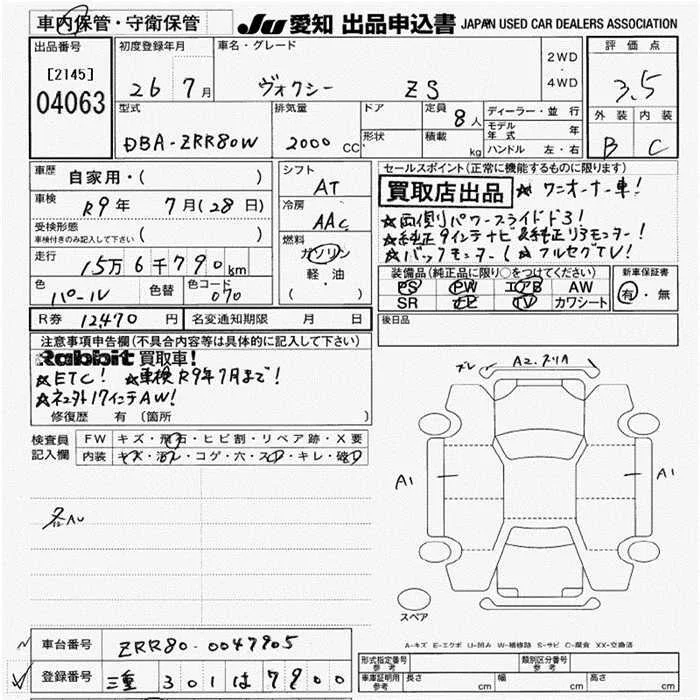 車内保管・守衛保管 JU 愛知 出品申込書 JAPAN USED CAR DEALERS ASSOCIATION
出品番号 初度登録年月 車名・グレード 2WD ・ 4WD 評価点
[2145] 04063 26 7月 ヴォクシー ZS 3.5
型式 排気量 ドア 定員 8人 ディーラー・並行 外装 内装
DBA-ZRR80W 2000 CC 形状 積載 kg モデル年式 年 B C
ハンドル 左・右
車歴 自家用・( ) シフト AT セールスポイント(正常に機能するものに限ります)
車検 R9年 7月(28日) 冷房 AAC 買取店出品 ★ワンオーナー車!
受検形態 車検付きのみ記入して下さい ( ) 燃料 ガソリン ★両側パワースライドドア!
★純正9インチナビ&純正リアモニター!
走行 15万6千790km 軽油 ★バックモニター! ★フルセグTV!
色 パール 色替 色コード 070 ( ) 装備品(純正品に限り○をつけてください) 新車保証書
PS PW エアB AW 有・無
SR ナビ TV カワシート
R券 12,470円 名変通知期限 月 日 後日品
注意事項申告欄(不具合内容等は具体的に記入して下さい)
Rabbit買取車!
★ETC! ★車検R9年7月まで!
★ネオ外17インチAW!
修復歴 有 (箇所
検査員記入欄 FW キズ・飛石・ヒビ割・リペア跡・X要
内装 キズ・汚れ・コゲ・穴・スレ・キレ・破れ
ズレ A2.スリA
A1 A1
各ヘレ
スペア
A-キズ E-エクボ U-凹み W-補修跡 S-サビ C-腐食 XX-交換済
車台番号 ZRR80-0047905 形式指定番号 参考 類別区分番号 参考
登録番号 三重 301は7900 車庫証明用 参考 長さ cm 幅 cm 高さ cm